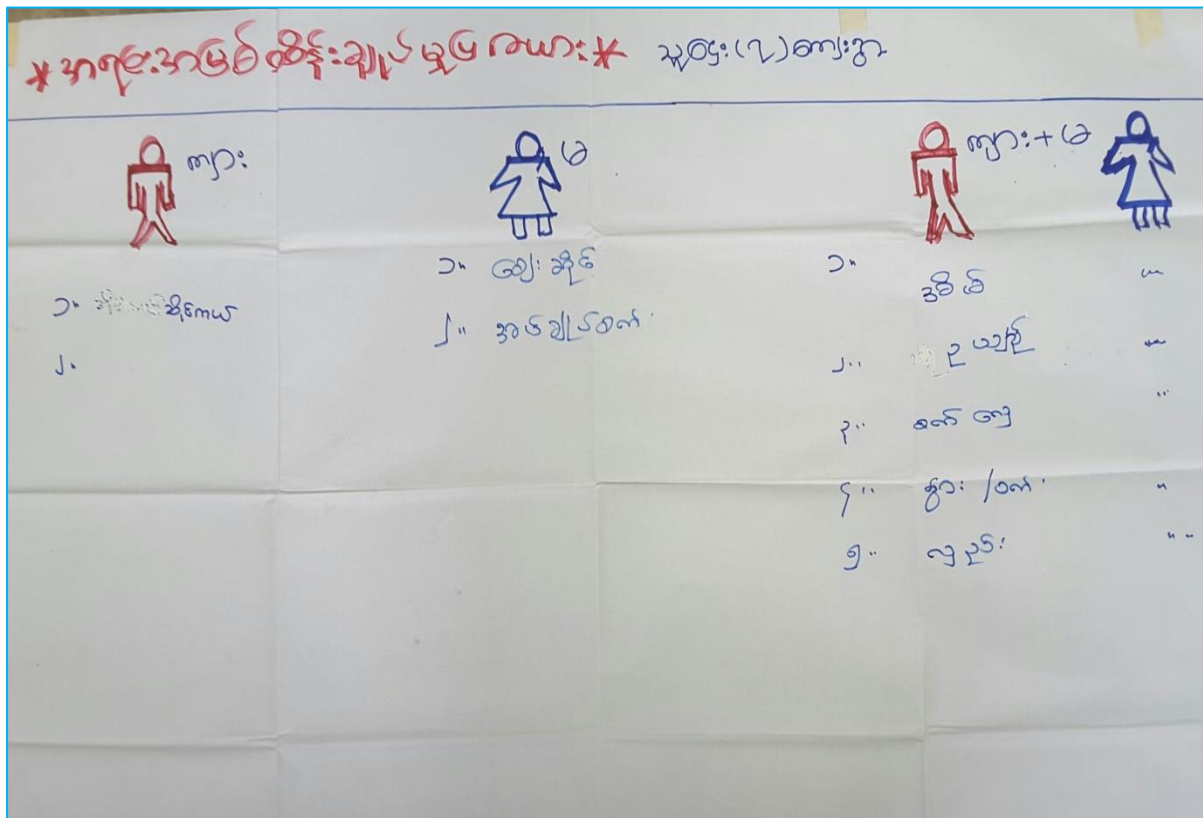 *အရင်းအမြစ်ထိန်းချုပ်မှုပြဇယား* သူဌေး(၃)ကျေးရွာ
ကျား
မ
ကျား+မ
၁။ ဆိုင်ကယ်
၂။
၁။ ဈေးဆိုင်
၂။ အပ်ချုပ်စက်
၁။ အိမ် "
၂။ ဥယျာဉ် "
၃။ စက်လှေ "
၄။ နွား/ဝက် "
၅။ လှည်း "